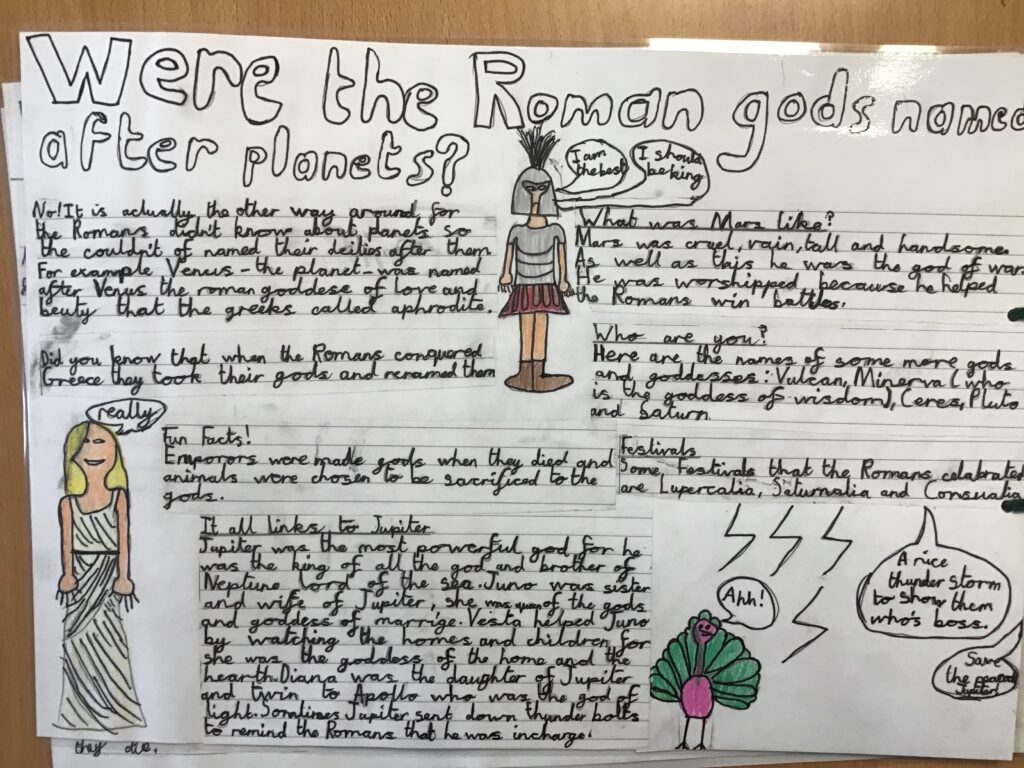 Were the Roman gods named
after planets?
I am
the best
I should
be king
No! It is actually the other way around, for
the Romans didn't know about panets so
the couldn't of named their deities after them
For example Venus - the planet - was named
after Venus the roman goddess of love and
beuty that the greeks called aphrodite.
Did you know that when the Romans conquered
Greece they took their gods and renamed them
What was Mars like?
Mars was cruel, vain, tall and handsome.
As well as this he was the god of war
He was worshipped because he helped
the Romans win battles.
Who are you?
Here are the names of some more gods
and goddesses: Vulcan, Minerva (who
is the goddess of wisdom), Ceres, Pluto
and saturn
really
Fun Facts!
Emporors were made gods when they died and
animals were chosen to be sacrificed to the
gods.
Festivals
Some festivals that the Romans celabrated
are Lupercalia, Saturnalia and Consualia
It all links to Jupiter
Jupiter was the most powerful god, for he
was the king of all the god and brother of
Neptune lord of the sea. Juno was sister
and wife of Jupiter, she was queen of the gods
and goddess of marrige. Vesta helped Juno
by watching the homes and children for
she was the goddess of the home and the
hearth. Diana was the daughter of Jupiter
and twin to Apollo who was the god of
light. Somtimes Jupiter sent down thunder bolts
to remind the Romans that he was incharge!
Ahh!
A nice
thunder storm
to show them
who's boss.
Save
the
Jupiter!
they die.